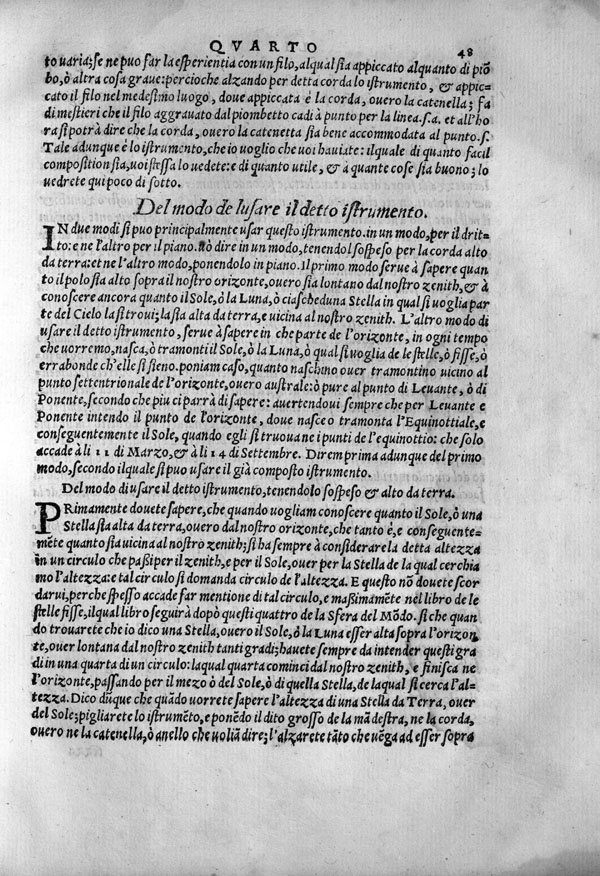 QVARTO
48
to uaria; se ne puo far la esperientia con un filo, al qual sia appiccato alquanto di piō
bo, ò altra cosa graue: percioche alzando per detta corda lo istrumento, & appic-
cato il filo nel medesimo luogo, doue appiccata è la corda, ouero la catenella; fa
di mestieri che il filo aggrauato dal piombetto cadi à punto per la linea.f.a. et all'ho
ra si potrà dire che la corda, ouero la catenetta sia bene accommodata al punto.f.
Tale adunque è lo istrumento, che io voglio che uoi hauiate: il quale di quanto facil
composition sia, uoi stessi lo uedete: e di quanto utile, & à quante cose sia buono; lo
uedrete qui poco di sotto.
Del modo de lusare il detto istrumento.
IN due modi si puo principalmente usar questo istrumento. in un modo, per il drit-
to: e ne l'altro per il piano. uò dire in un modo, tenendol sospeso per la corda alto
da terra: et ne l'altro modo, ponendolo in piano. Il primo modo serue à sapere quan
to il polo sia alto sopra il nostro orizonte, ouer sia lontano dal nostro zenith, & à
conoscere ancora quanto il Sole, ò la Luna, ò ciascheduna Stella in qual si voglia par
te del Cielo la si troui; la sia alta da terra, e uicina al nostro zenith. L'altro modo di
usare il detto istrumento, serue à sapere in che parte de l'orizonte, in ogni tempo
che uorremo, nasca, ò tramonti il Sole, ò la Luna, ò qual si uoglia de le stelle, ò fisse, ò
errabonde ch'elle si sieno. poniam caso, quanto naschino ouer tramontino uicino al
punto settentrionale de l'orizonte, ouero australe: ò pure al punto di Leuante, ò di
Ponente, secondo che piu ci parrà di sapere: auertendoui sempre che per Leuante e
Ponente intendo il punto de l'orizonte, doue nasce o tramonta l'Equinottiale, e
conseguentemente il Sole, quando egli si truoua ne i punti de l'equinottio: che solo
accade à li 11 di Marzo, & à li 14 di Settembre. Direm prima adunque del primo
modo, secondo il quale si puo usare il già composto istrumento.
Del modo di usare il detto istrumento, tenendolo sospeso & alto da terra.
PRimamente douete sapere, che quando uogliam conoscere quanto il Sole, ò una
Stella sia alta da terra, ouero dal nostro orizonte, che tanto è, e conseguente-
mēte quanto sia uicina al nostro zenith; si ha sempre à considerare la detta altezza
in un circulo che paßi per il zenith, e per il Sole, ouer per la Stella de la qual cerchia
mo l'altezza: e tal circulo si domanda circulo de l'altezza. E questo nō douete scor
darui, perche spesso accade far mentione di tal circulo, e maßimamēte nel libro de le
stelle fisse, il qual libro seguirà dopò questi quattro de la Sfera del Mōdo. si che quan
do trouarete che io dico una Stella, ouero il Sole, ò la Luna esser alta sopra l'orizon
te, ouer lontana dal nostro zenith tanti gradi; hauete sempre da intender questi gra
di in una quarta di un circulo: la qual quarta cominci dal nostro zenith, e finisca ne
l'orizonte, passando per il mezo ò del Sole, ò di quella Stella, de la qual si cerca l'al-
tezza. Dico dūque che quādo uorrete sapere l'altezza di una Stella da Terra, ouer
del Sole; pigliarete lo istrumēto, e ponēdo il dito grosso de la mā destra, ne la corda,
ouero ne la catenella, ò anello che uoliā dire; l'alzarete tāto che uēga ad esser sopra